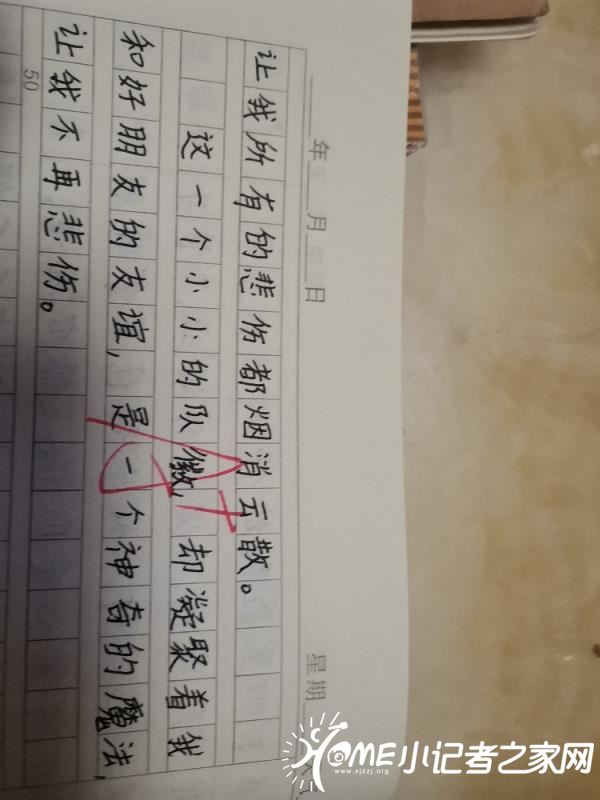 年 月 日 星期
让我所有的悲伤都烟消云散。
这一个小小的队徽，却凝聚着我
和好朋友的友谊，是一个神奇的魔法，
让我不再悲伤。
50
A+
HOME小记者之家网
www.xjzzj.org